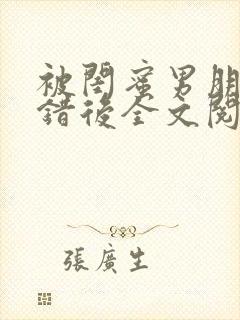 被閨蜜男朋
錯後全文閱
張廣生